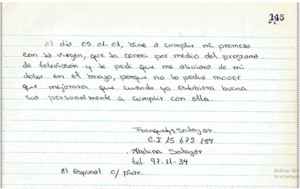 145
El día 05.01.01, vine a cumplir mi promesa
con la virgen, que la conocí por medio del programa
de televisión y le pedí que me aliviara de mi
dolor en el brazo, porque no lo podía mover
que mejorara que cuando yo estubiera buena
personalmente a cumplir con ella.
Salazar
C.I 15 675 154
Salazar
tel. 97.11.34
El Espinal c/
Activar W